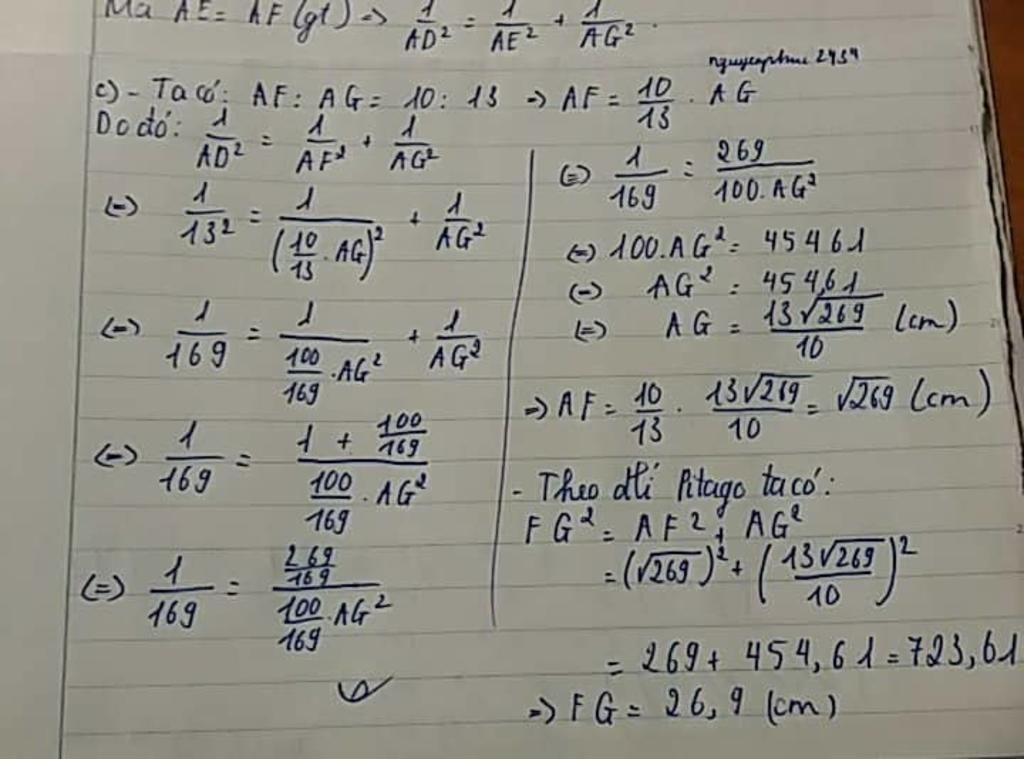 Mà AE = AF (gt) => 1/AD² = 1/AE² + 1/AG².
c) - Ta có: AF : AG = 10 : 13 => AF = 10/13 . AG
Do đó: 1/AD² = 1/AF² + 1/AG²
(=) 1/13² = 1/(10/13 . AG)² + 1/AG²
(=) 1/169 = 1/(100/169 . AG²) + 1/AG²
(=) 1/169 = (1 + 100/169)/(100/169 . AG²)
(=) 1/169 = (269/169)/(100/169 . AG²)
(=) 1/169 = 269/(100.AG²)
(=) 100.AG² = 45461
(=) AG² = 454,61
(=) AG = 13√269/10 (cm)
=> AF = 10/13 . 13√269/10 = √269 (cm)
- Theo đlí Pitago ta có:
FG² = AF² + AG²
= (√269)² + (13√269/10)²
= 269 + 454,61 = 723,61
=> FG = 26,9 (cm)